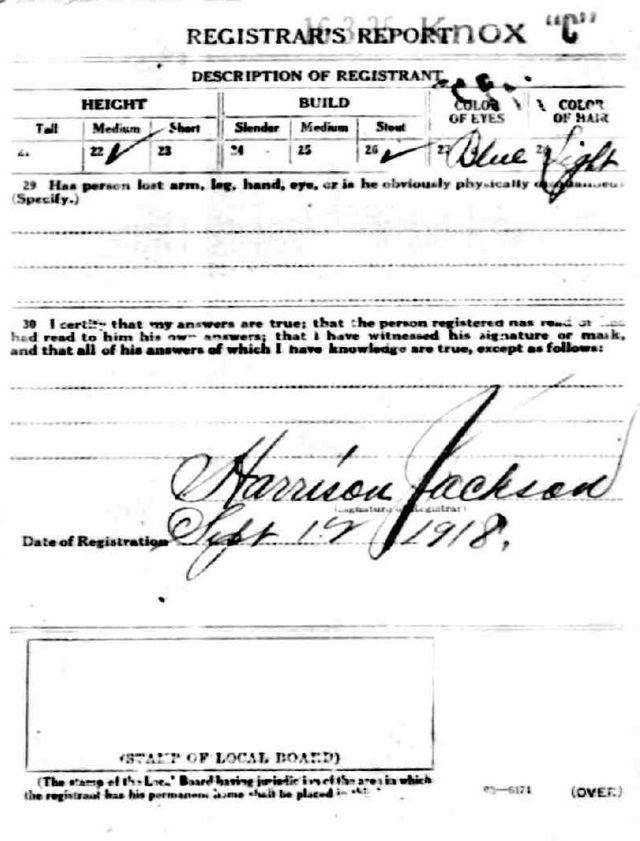 REGISTRAR'S REPORT Knox "C"
DESCRIPTION OF REGISTRANT
HEIGHT BUILD COLOR OF EYES COLOR OF HAIR
Tall Medium Short Slender Medium Stout
21 22 ✓ 23 24 25 26 ✓ 27 Blue Light
29 Has person lost arm, leg, hand, eye, or is he obviously physically
(Specify.)
30 I certify that my answers are true; that the person registered has read or has
had read to him his own answers; that I have witnessed his signature or mark,
and that all of his answers of which I have knowledge are true, except as follows:
Harrison Jackson
(Signature of Registrar)
Date of Registration Sept 12 1918.
(STAMP OF LOCAL BOARD)
(The stamp of the Local Board having jurisdiction of the area in which
the registrant has his permanent home shall be placed in
03—6171 (OVER)